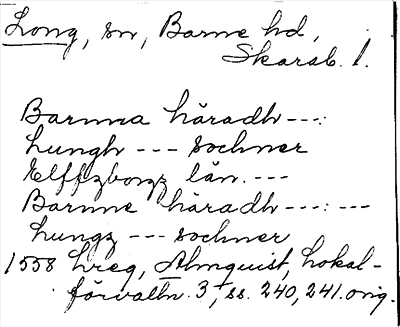 Long, sn, Barne hd,
Skarab. l.
Barnna häradh ---:
Lungh --- sochner
Elffzborgz län. ---
Barnne häradh ---: ---
Lungz --- sochner
1558 Lreg, Almquist, Lokal-
förvaltn. 3, ss. 240, 241. orig.